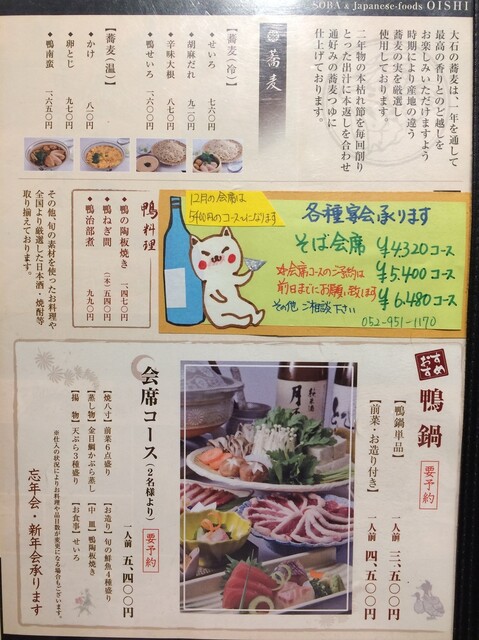 SOBA & Japanese-foods OISHI
大石の蕎麦は、一年を通して
最高の香りとのど越しを
お楽しみいただけますよう
時期により産地の違う
蕎麦の実を厳選し
使用しております。
二年物の本枯れ節を毎回削り
とった出汁に本返しを合わせ
通好みの蕎麦つゆに
仕上げております。
蕎麦
【蕎麦(冷)】
せいろ 七六〇
胡麻だれ 九一〇
辛味大根 八七〇
鴨せいろ 一、六〇〇
【蕎麦(温)】
かけ 八一〇
卵とじ 九七〇
鴨南蛮 一、六五〇
12月の会席は
5400円のコースになります
各種宴会承ります
そば会席 ¥4.320コース
¥5.400コース
¥6.480コース
※会席コースのご予約は
前日までにお願い致します
その他 ご相談下さい
052-951-1170
鴨料理
鴨の陶板焼き 一、四七〇
鴨ねぎ間 (一本)五四〇
鴨治部煮 九九〇
その他、旬の素材を使ったお料理や
全国より厳選した日本酒・焼酎等
取り揃えております。
おすすめ
鴨鍋 要予約
【鴨鍋単品】 一人前 三、五〇〇円
【前菜・お造り付き】 一人前 四、五〇〇円
純米酒
会席コース(2名様より) 要予約
一人前 五、四〇〇円
【焼八寸】前菜6点盛り 【お造り】旬の鮮魚4種盛り
【蒸し物】金目鯛かぶら蒸し 【中 皿】鴨陶板焼き
【揚 物】天ぷら3種盛り 【お食事】せいろ
※仕入の状況によりお料理や品目数が変更になる場合もございます。
忘年会・新年会承ります